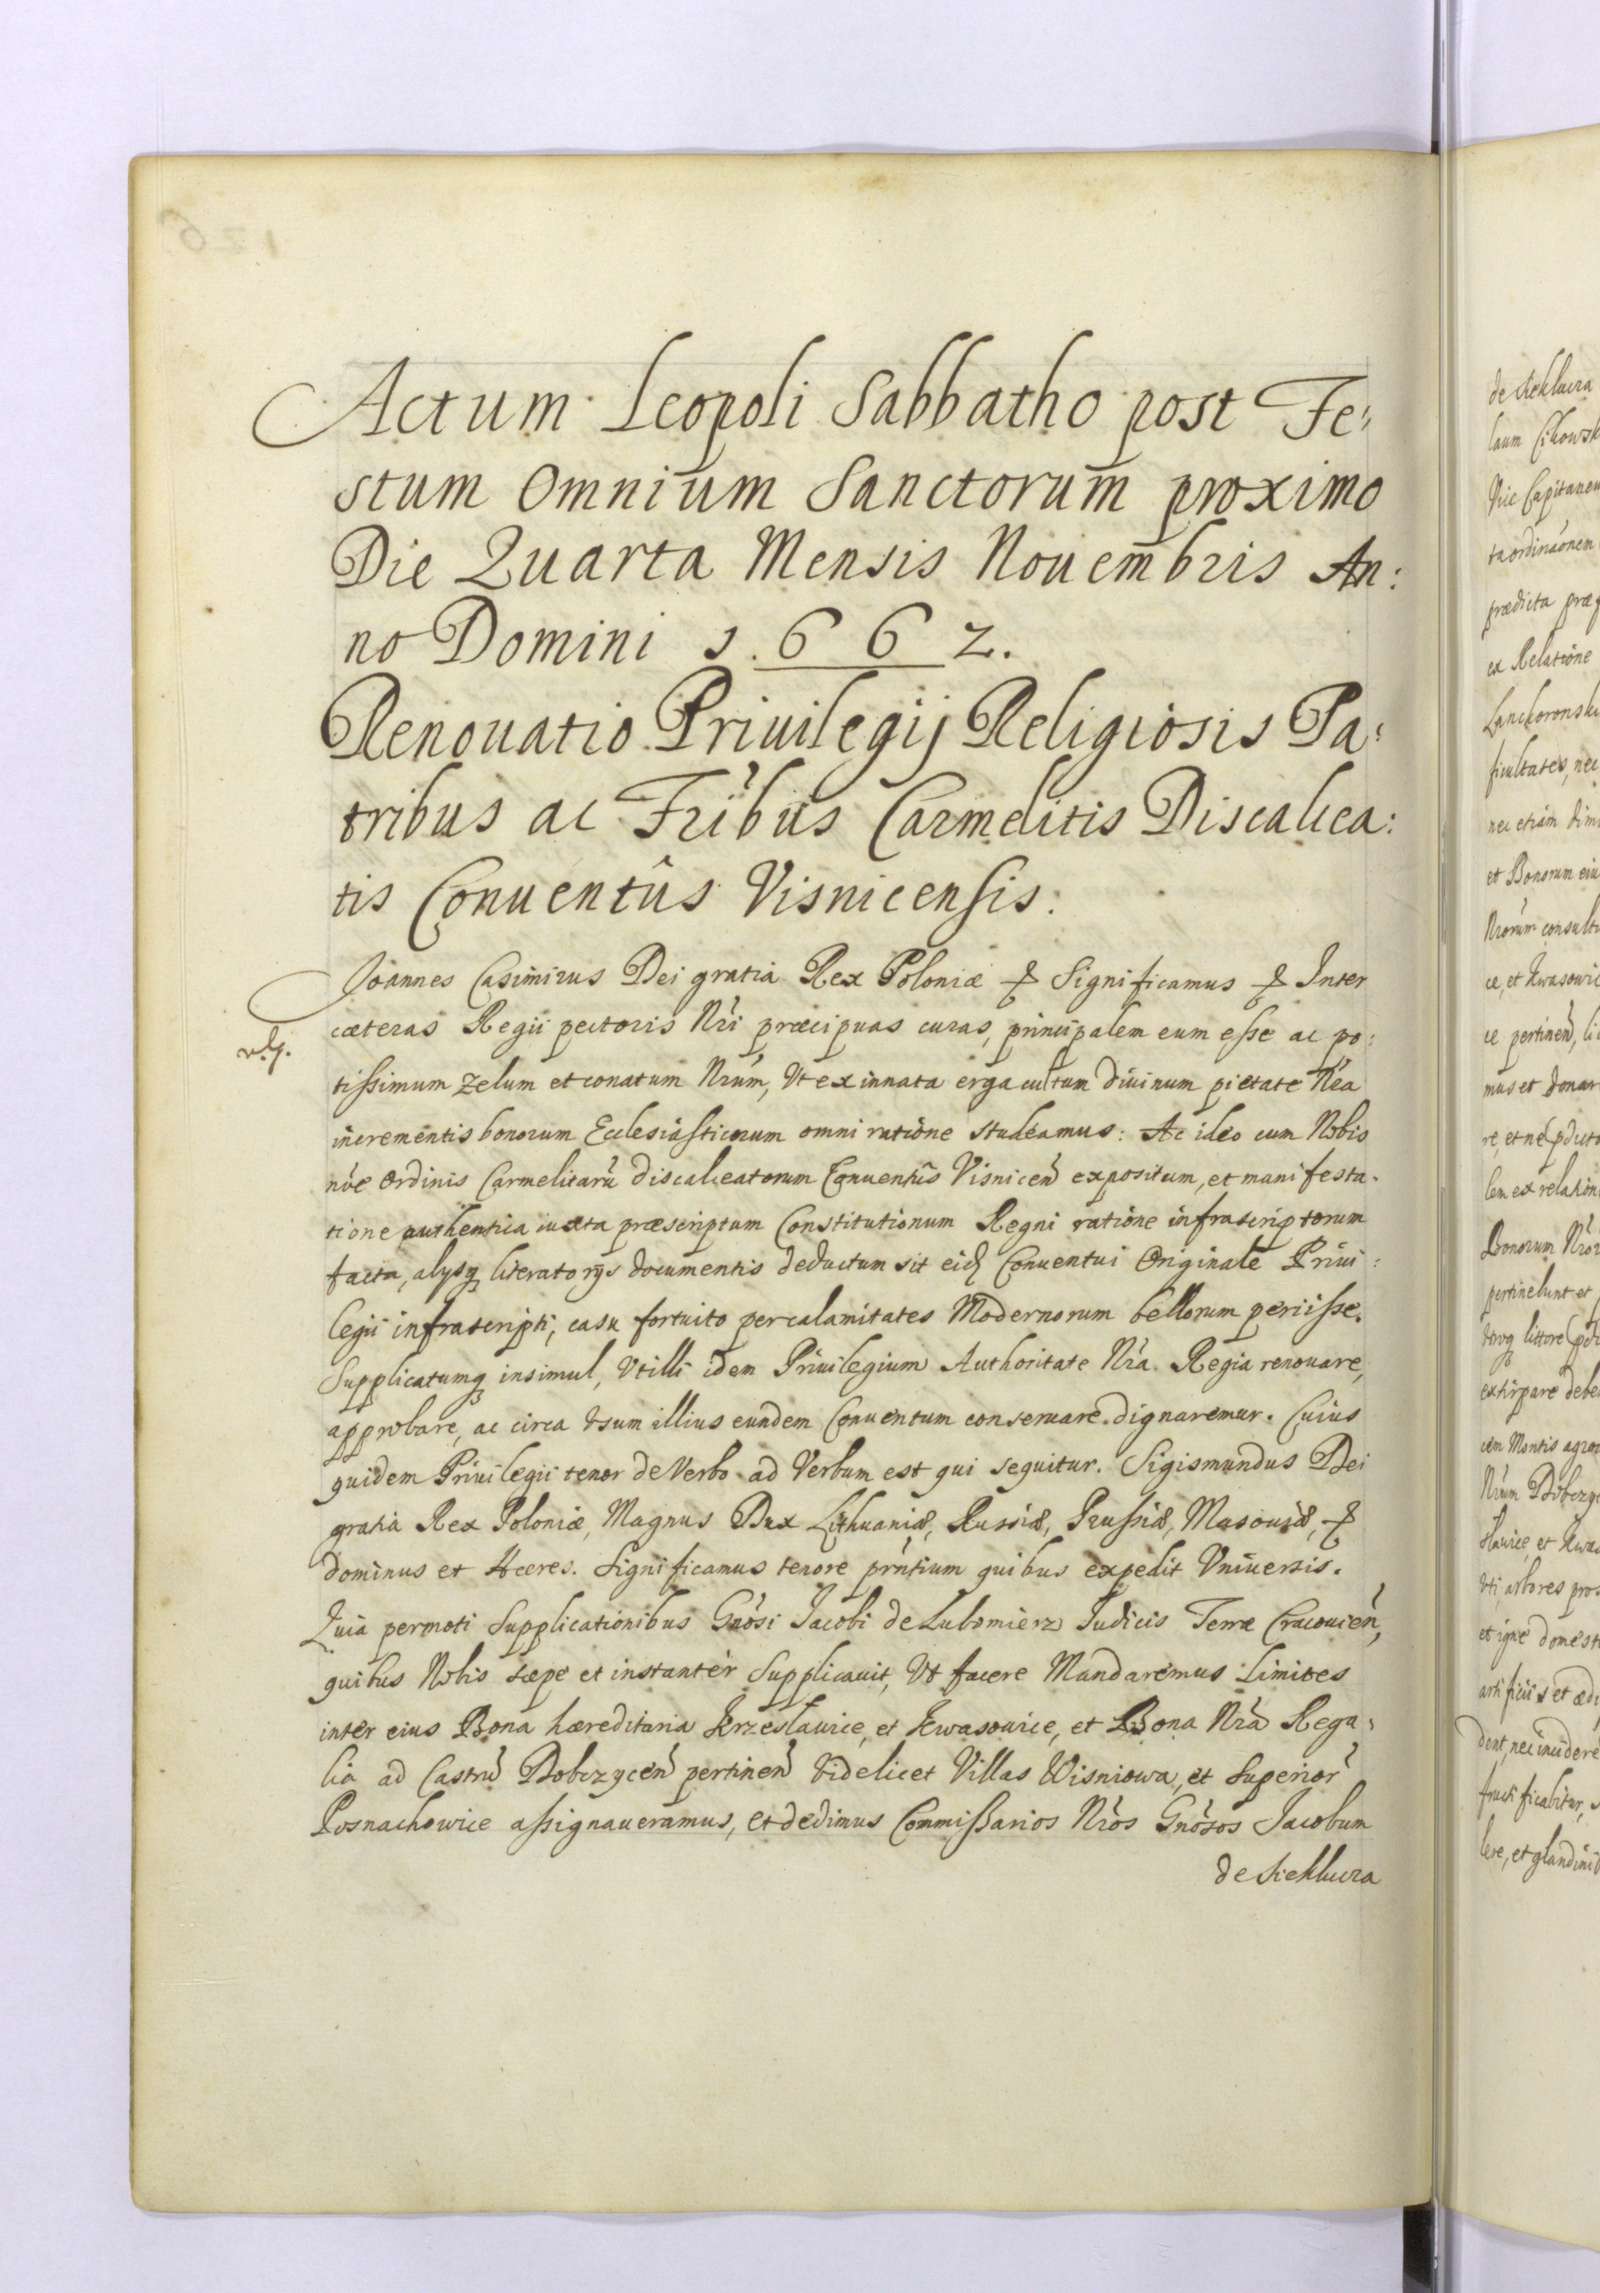 Actum Leopoli Sabbatho post Fe:
stum Omnium Sanctorum proximo
Die Quarta Mensis Nouembris An:
no Domini 1662.
Renouatio Priuilegij Religiosis Pa:
tribus ac Fribus Carmelitis Discalcea:
tis Conuentûs Visnicensis.
Joannes Casimirus Dei gratia Rex Poloniæ Significamus Inter
cæteras Regii pectoris Nri præcipuas curas, principalem eum esse ac po:
tissimum zelum et conatum Nrum, Vt ex innata erga cultum diuinum pietate Nra
incrementis bonorum Ecclesiasticorum omni ratione studeamus: Ac ideo cum Nobis
nõe Ordinis Carmelitarũ discalceatorum Conuentûs Visnicen̄ expositum, et manifesta-
tione authentica iuxta præscriptum Constitutionum Regni ratione infrascriptorum
facta, alysq literatorijs documentis deductum sit eid Conuentui Originale Priui:
legii infrascripti, casu fortuito per calamitates Modernorum bellorum periisse.
Supplicatumq insimul, Vt illi idem Priuilegium Authoritate Nra Regia renouare,
approbare, ac circa Vsum illius eundem Conuentum conseruare dignaremur. Cuius
quidem Priuilegii tenor de Verbo ad Verbum est qui sequitur. Sigismundus Dei
gratia Rex Poloniæ, Magnus Dux Lithuaniæ, Russiæ, Prussiæ, Masouiæ,
dominus et Hæres. Significamus tenore prntium quibus expedit Vniuersis.
Quia permoti Supplicationibus Gnosi Jacobi de Lubomierz Judicis Terræ Cracouien̄,
quibus Nobis sæpe et instanter Supplicauit, Vt facere Mandaremus Limites
inter eius Bona hæreditaria Krzeslauice, et Kwasowice, et Bona Nra Rega:
lia ad Castrũ Dobczycen̄ pertinen̄ Videlicet Villas Wisniowa, et Superior
Posnachowice assignaueramus, et dedimus Commissarios Nros Gnosos Jacobum
de
laum
Vic Capitaneu
prædicta
ex Relatione
Lanckoronski
ficultates, nec
nec etiam dim
et Bonorum eiu
Nrorum consult
ce, et Kwasowic
ce pertinen̄, li
mus et donar
lem ex relation
Bonorum Nror
pertinebunt et
extirpare debe
Nrum Dobczyc
slauice, et Kwas
Vti, arbores pros
et igne domest
artificiis et ædi
dent, nec incidere
fructificabitur, s